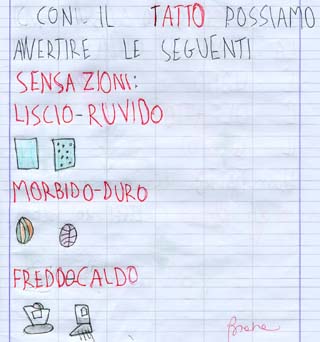 CON IL TATTO POSSIAMO
AVVERTIRE LE SEGUENTI
SENSAZIONI:
LISCIO-RUVIDO
MORBIDO-DURO
FREDDO-CALDO